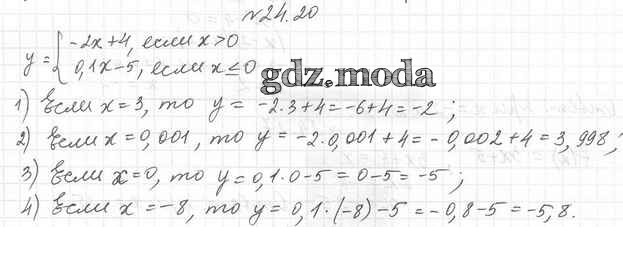 №24.20
y = { -2x+4, если x>0
0,1x-5, если x≤0
gdz.moda
1) Если x=3, то y = -2·3+4=-6+4=-2 ;
2) Если x=0,001, то y=-2·0,001+4=-0,002+4=3,998;
3) Если x=0, то y=0,1·0-5=0-5=-5;
4) Если x=-8, то y=0,1·(-8)-5=-0,8-5=-5,8.